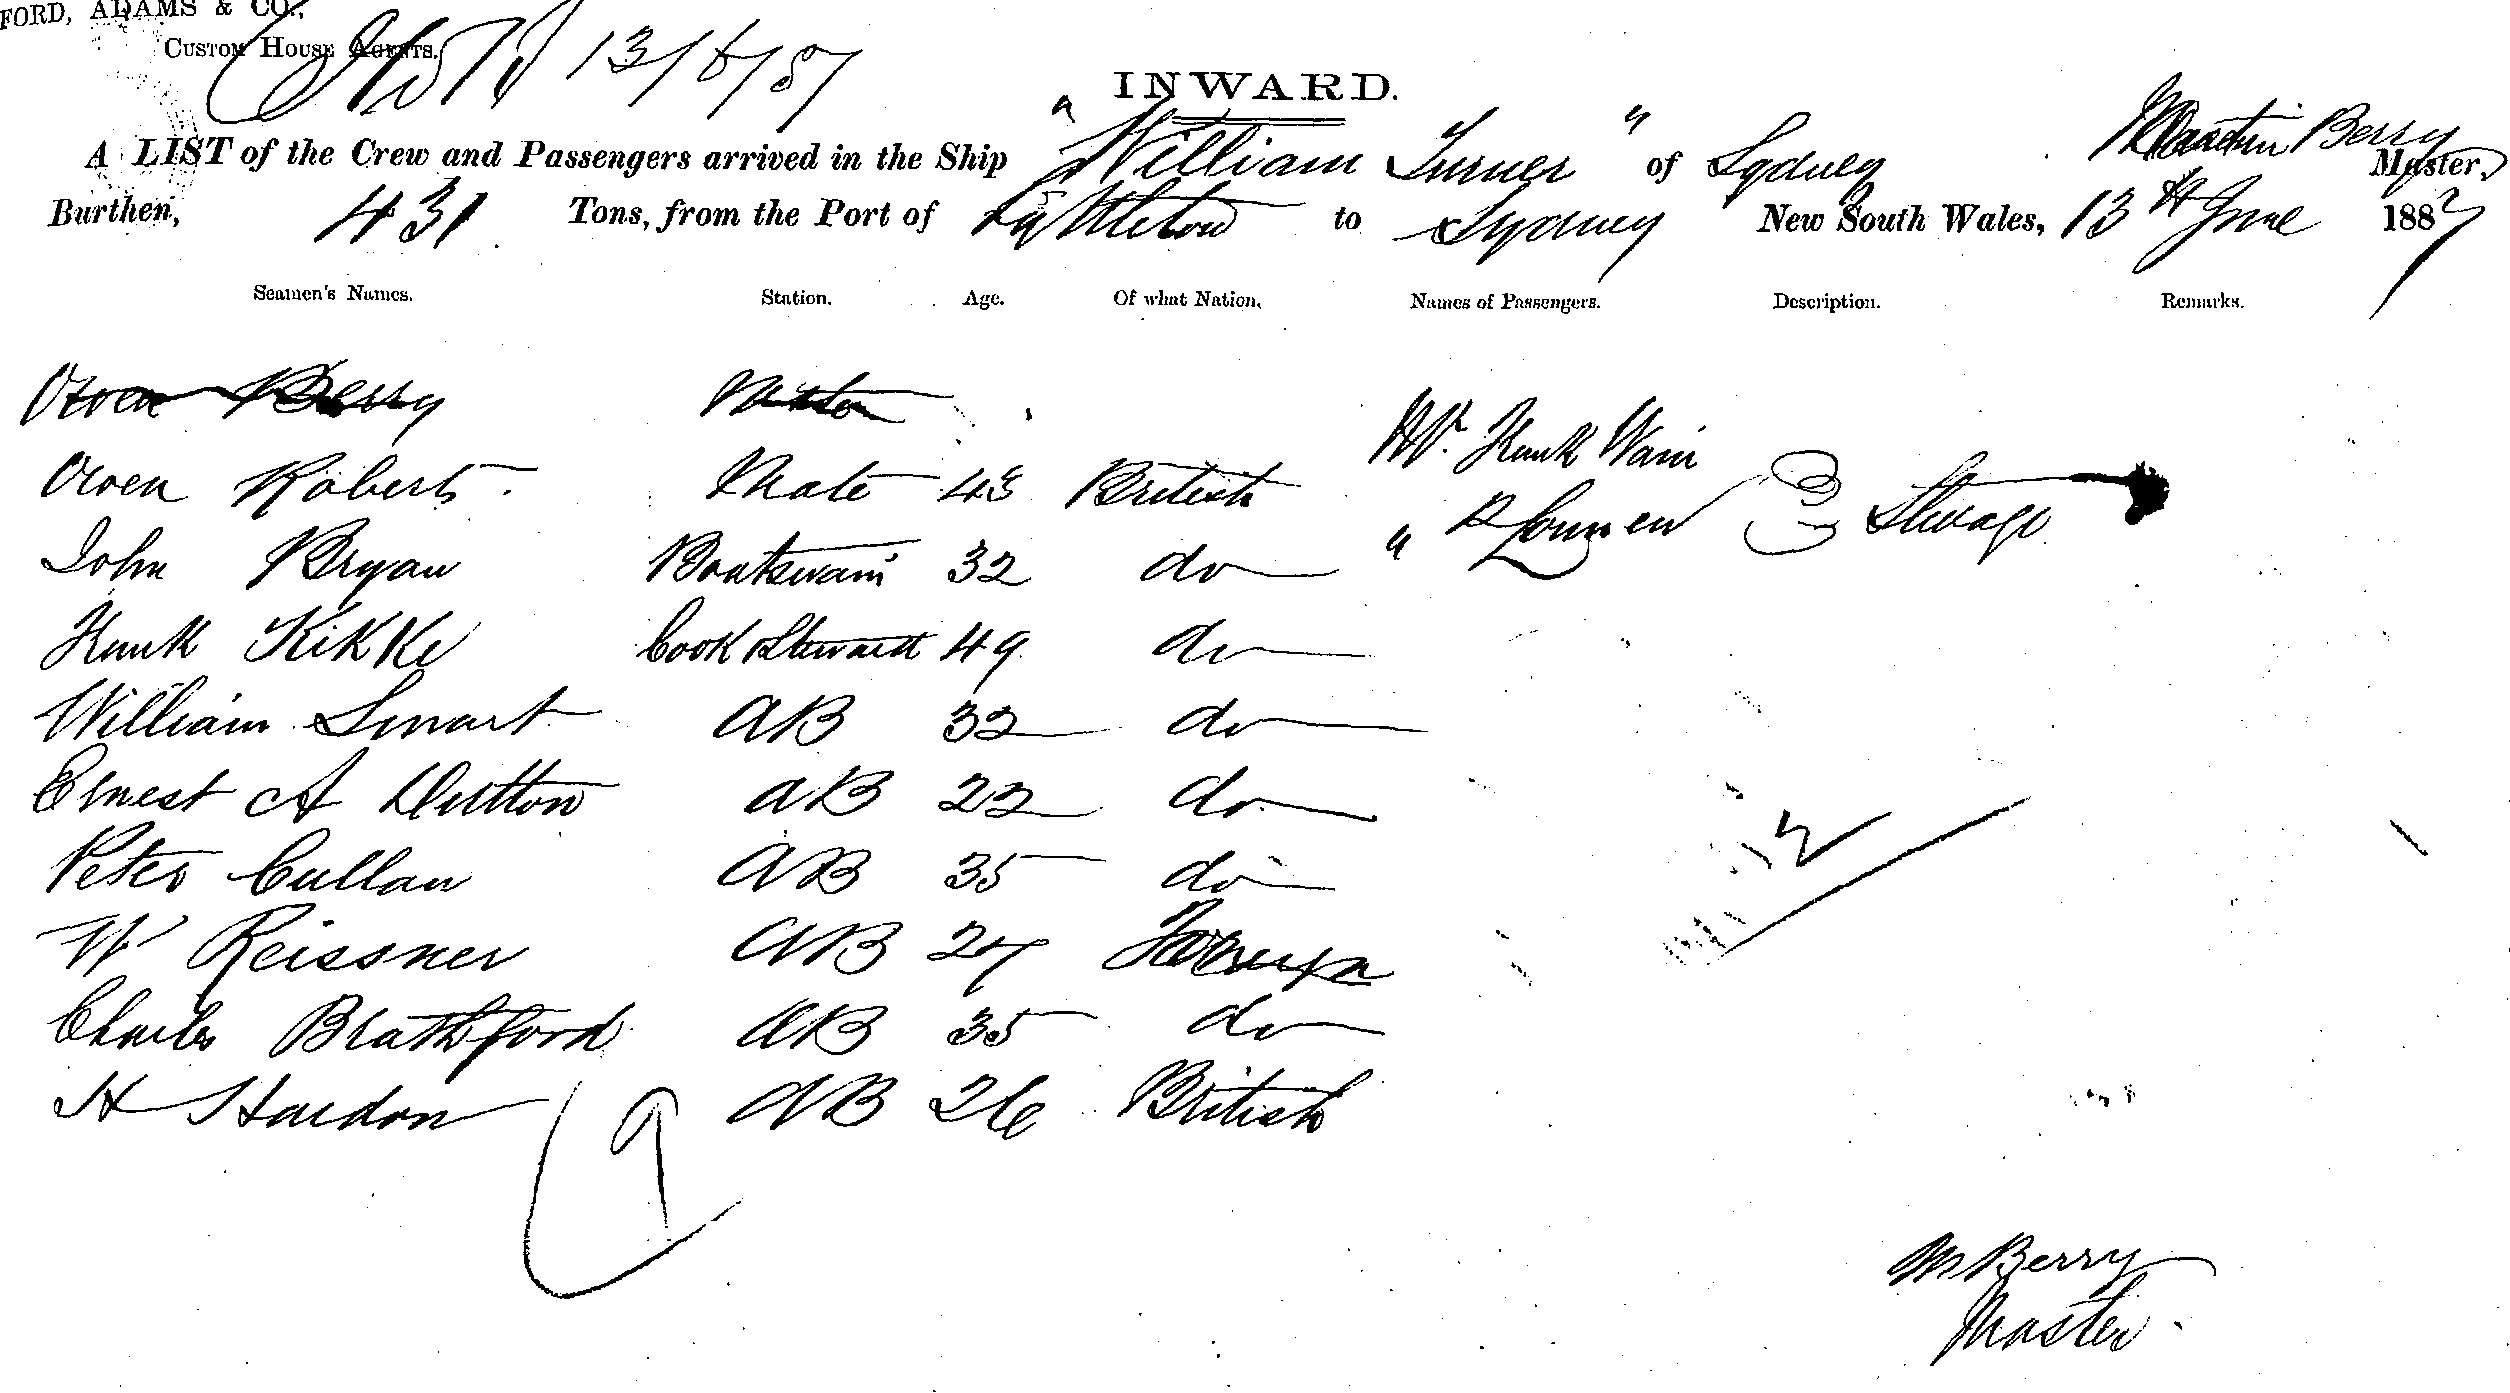 FORD, ADAMS & CO.,
CUSTOM HOUSE AGENTS.
13/6/87
INWARD.
A LIST of the Crew and Passengers arrived in the Ship "William Turner" of Sydney Martin Berry Master,
Burthen, 431 Tons, from the Port of Lyttleton to Sydney New South Wales, 13th June 1887
Seamen's Names. Station. Age. Of what Nation. Names of Passengers. Description. Remarks.
Owen Berry Master
Mr. Frank Wain
Owen Roberts Mate 43 British
" R Stwage
John Bryan Boatswain 32 do
Frank Kikke Cook Steward 49 do
William Smart AB 32 do
Ernest A Dutton AB 22 do
Peter Cullan AB 35 do
W Reissner AB 27 Foreign
Charles Brathford AB 35 do
H Hardon AB 26 British
9
M Berry
Master